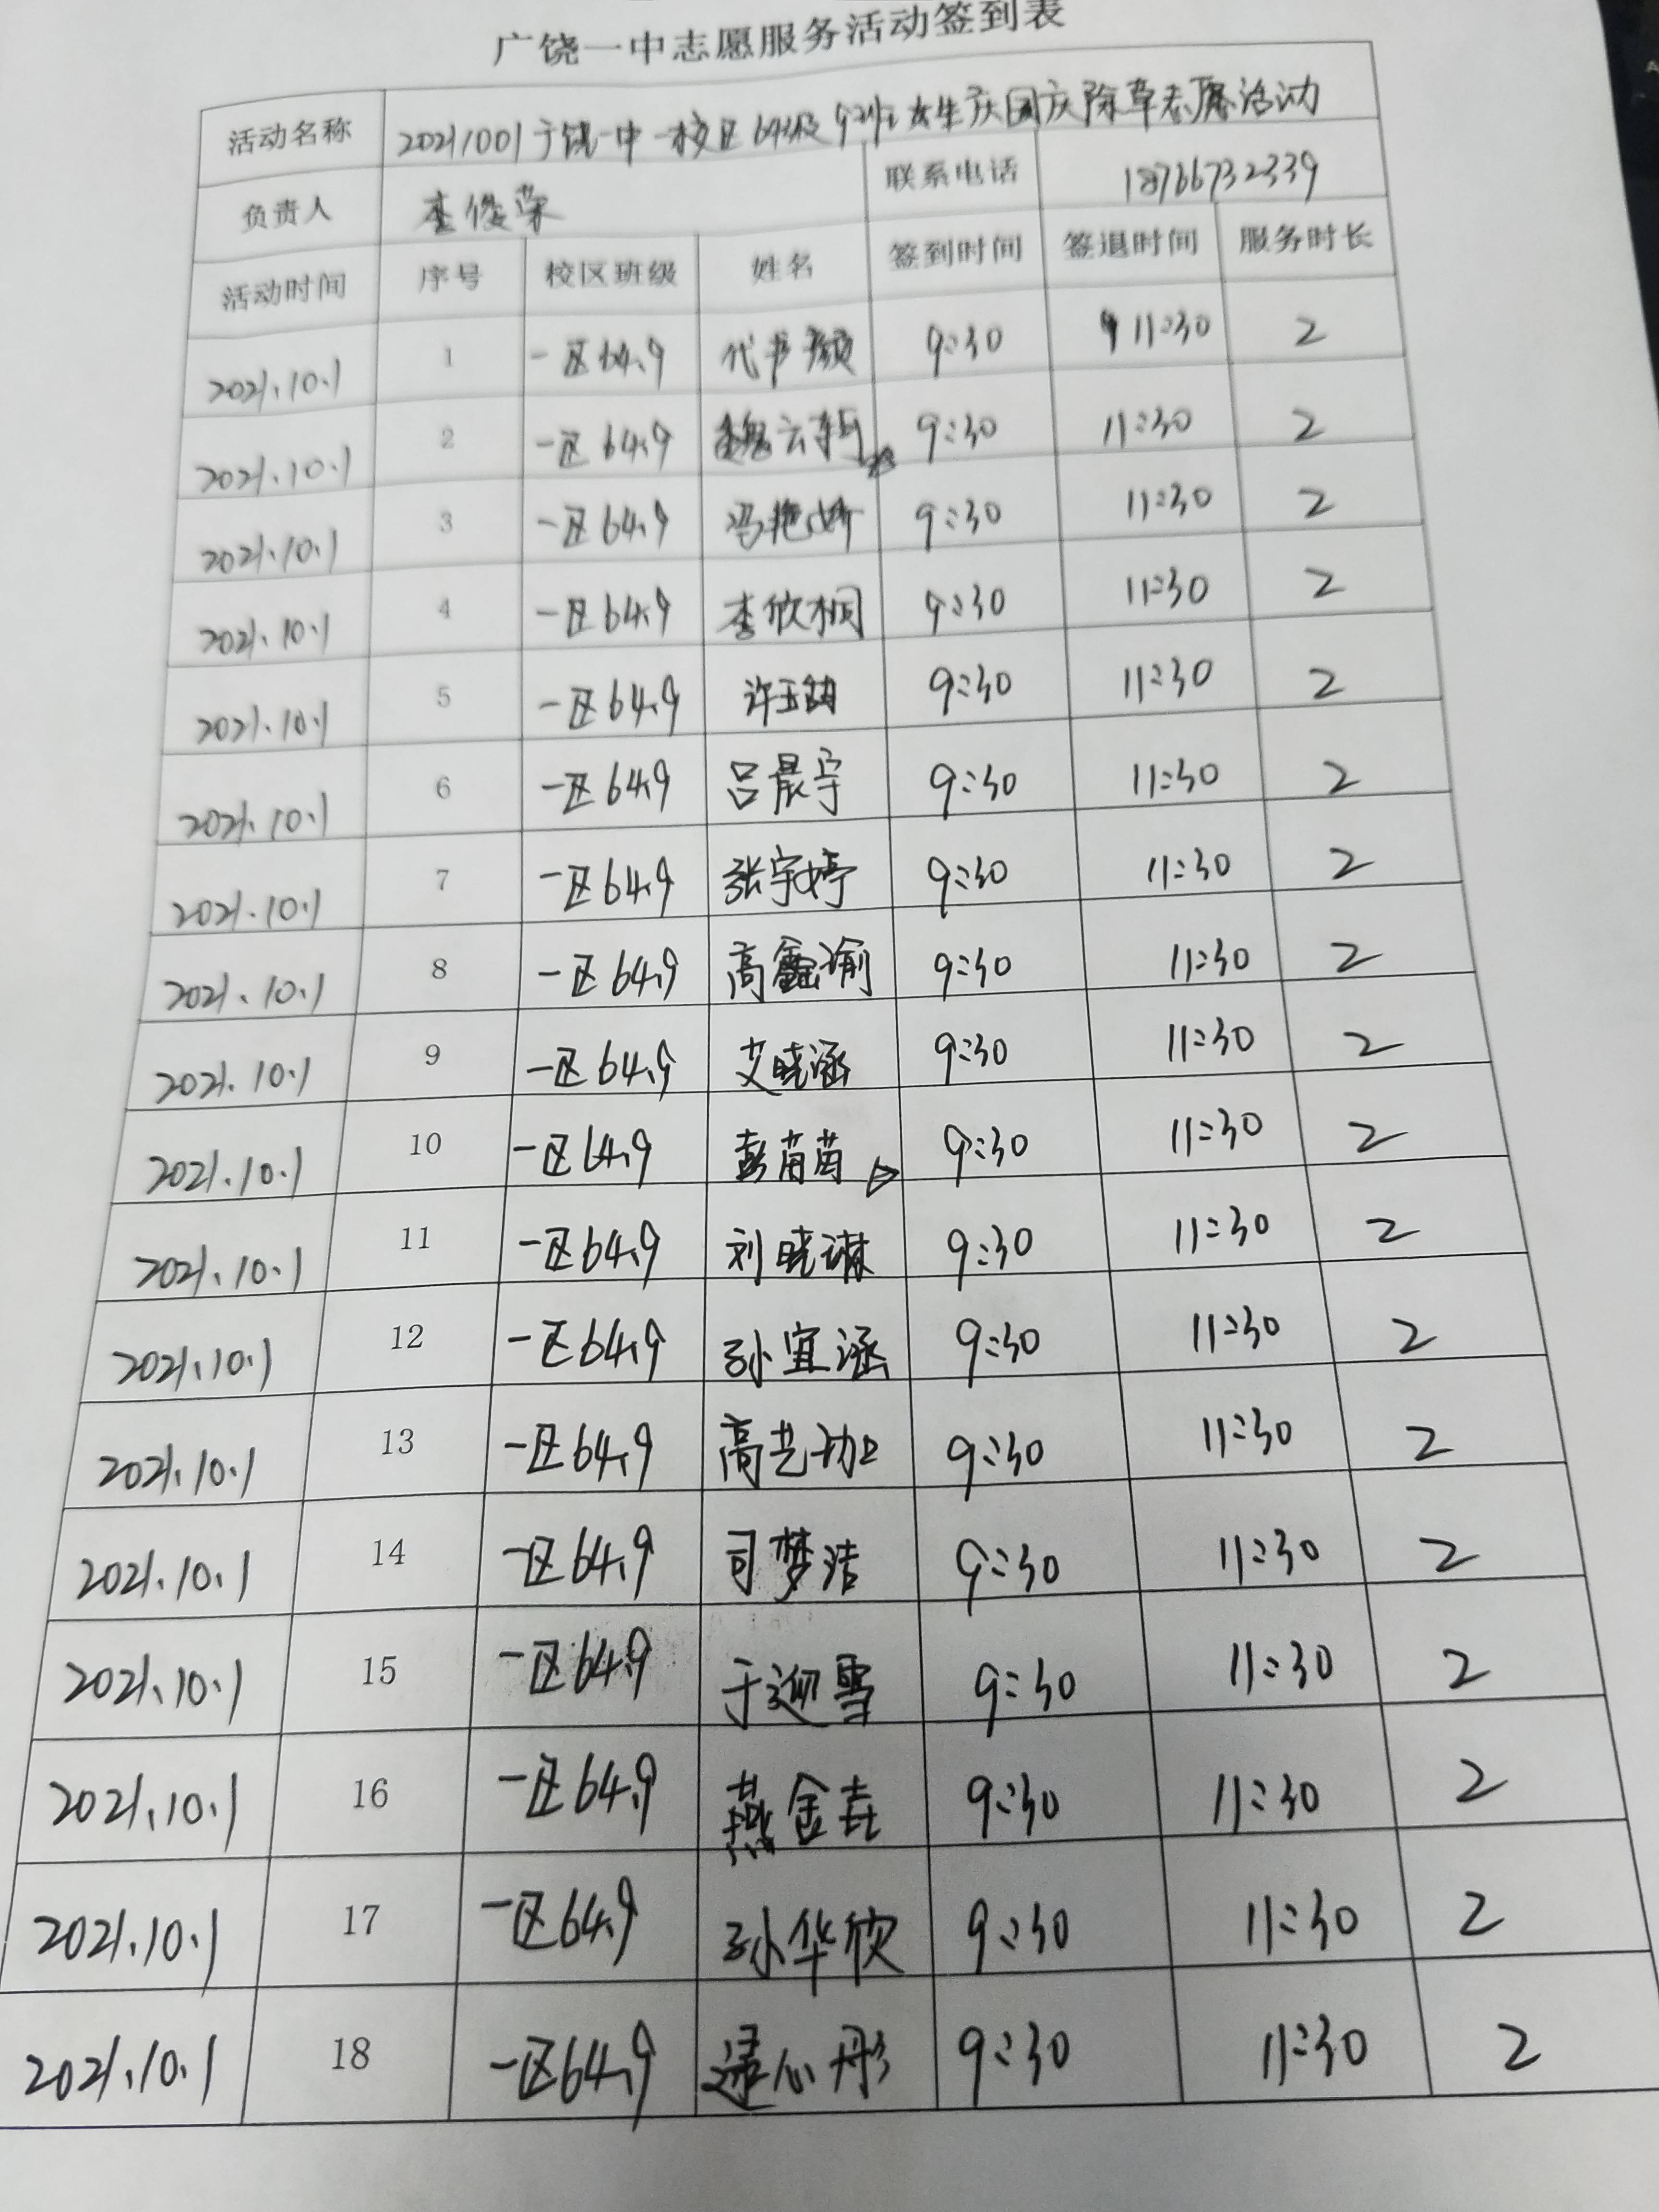 广饶一中志愿服务活动签到表
活动名称 20211001广饶一中一校区64级9班女生庆国庆除草志愿活动
负责人 李俊荣 联系电话 18766732339
活动时间 序号 校区班级 姓名 签到时间 签退时间 服务时长
2021.10.1 1 一区64.9 代书颜 9:30 11:30 2
2021.10.1 2 一区64.9 魏云轲 9:30 11:30 2
2021.10.1 3 一区64.9 冯艳娇 9:30 11:30 2
2021.10.1 4 一区64.9 李欣桐 9:30 11:30 2
2021.10.1 5 一区64.9 许玉 9:30 11:30 2
2021.10.1 6 一区64.9 吕晨宇 9:30 11:30 2
2021.10.1 7 一区64.9 张宇婷 9:30 11:30 2
2021.10.1 8 一区64.9 高鑫谕 9:30 11:30 2
2021.10.1 9 一区64.9 艾晓涵 9:30 11:30 2
2021.10.1 10 一区64.9 彭苗苗 9:30 11:30 2
2021.10.1 11 一区64.9 刘晓 9:30 11:30 2
2021.10.1 12 一区64.9 孙宜涵 9:30 11:30 2
2021.10.1 13 一区64.9 高艺 9:30 11:30 2
2021.10.1 14 一区64.9 司梦洁 9:30 11:30 2
2021.10.1 15 一区64.9 于迎雪 9:30 11:30 2
2021.10.1 16 一区64.9 燕金垚 9:30 11:30 2
2021.10.1 17 一区64.9 孙华欣 9:30 11:30 2
2021.10.1 18 一区64.9 逯心彤 9:30 11:30 2